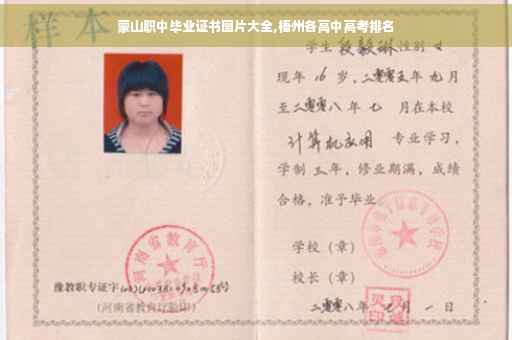 蒙山职中毕业证书图片大全,梧州各高中高考排名
样本
学生 段毅琳 性别 女
现年 16 岁,二零零五年 九月
至二零零八年 七 月在本校
计算机应用 专业学习,
学制 三 年,修业期满,成绩
合格,准予毕业
学校(章)
校长(章)
二零零八年 七 月 一 日
河南省教育厅
豫教职专证字
(河南省教育厅验印)